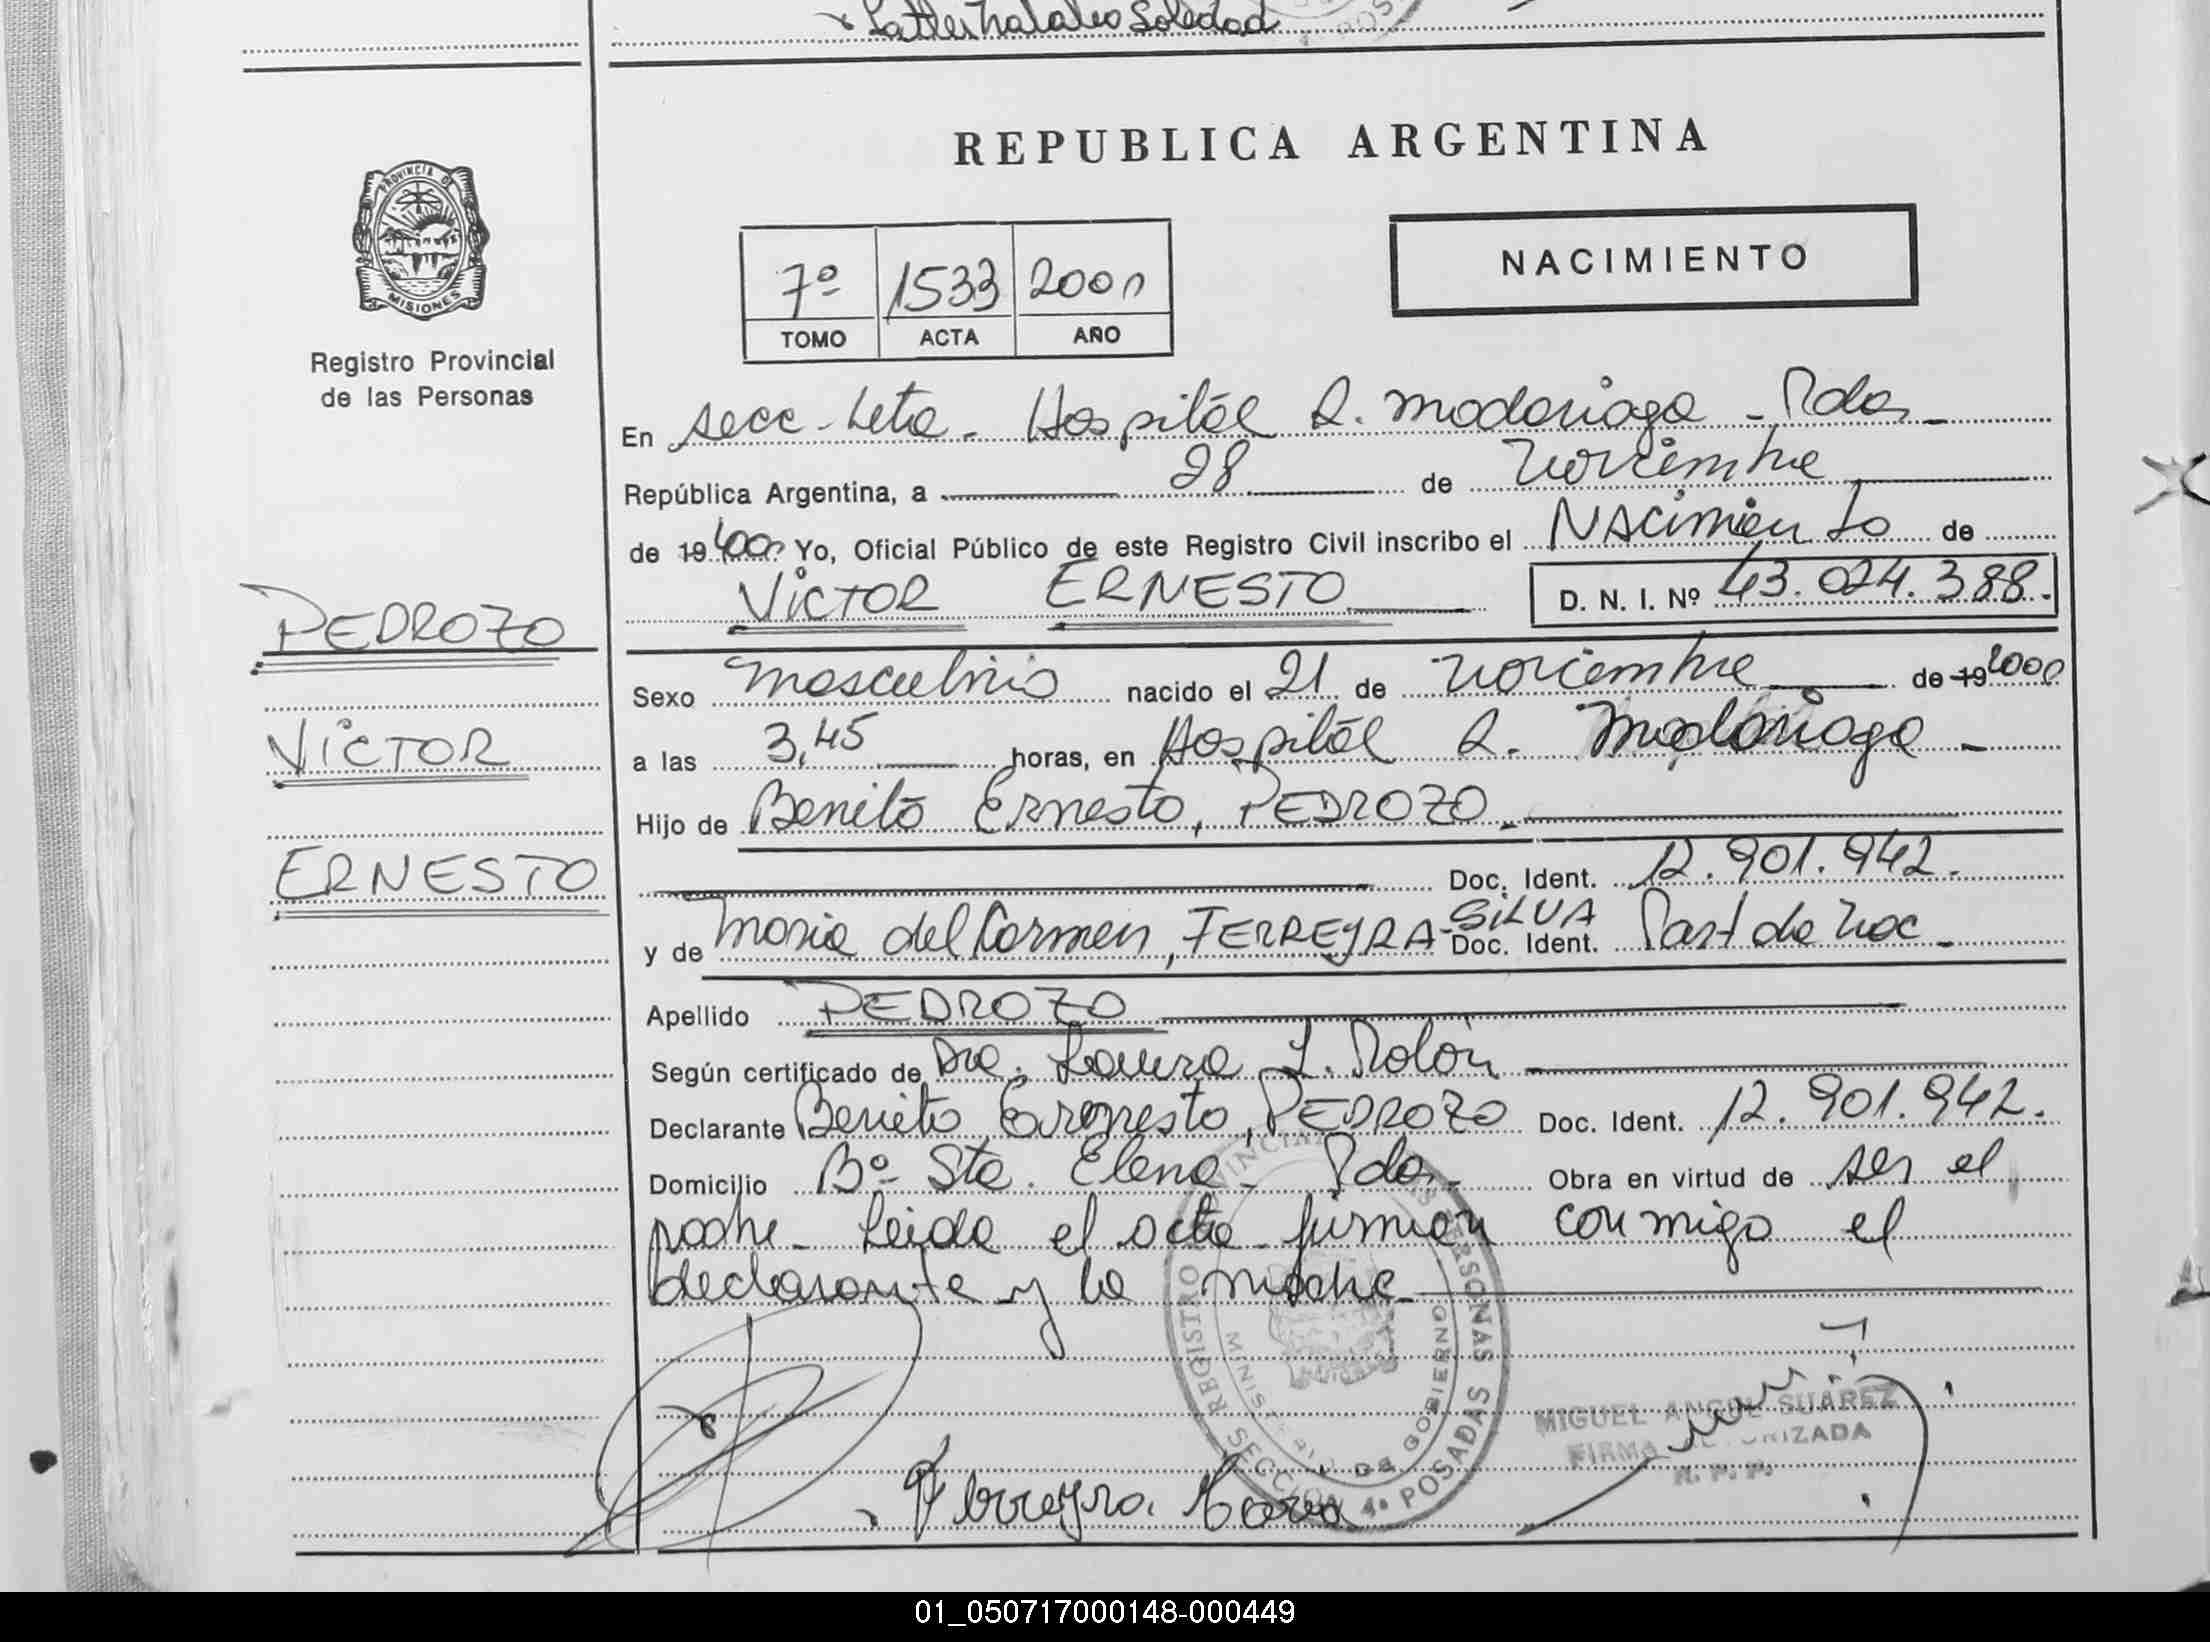 Soledad
REPUBLICA ARGENTINA
PROVINCIA DE
MISIONES
Registro Provincial
de las Personas
7º 1533 2000
TOMO ACTA AÑO
NACIMIENTO
En Secc. 4ta. Hospital R. Madariaga - Pdas -
República Argentina, a 28 de Noviembre
de 19 2000 Yo, Oficial Público de este Registro Civil inscribo el Nacimiento de
VICTOR ERNESTO D. N. I. Nº 43.024.388.
PEDROZO
VICTOR
ERNESTO
Sexo Masculino nacido el 21 de Noviembre de 19 2000
a las 3,45 horas, en Hospital R. Madariaga -
Hijo de Benito Ernesto, PEDROZO.
Doc. Ident. 12.901.942.
y de Maria del Carmen, FERREYRA-SILVA Doc. Ident. Part de Nac -
Apellido PEDROZO
Según certificado de Dra. Laura L. Rolón
Declarante Benito Ernesto, PEDROZO Doc. Ident. 12.901.942.
Domicilio Bº Sta. Elena - Pdas. Obra en virtud de ser el
padre. Leida el acta firman conmigo el
declarante y la madre
REGISTRO PROVINCIAL DE LAS PERSONAS
MINISTERIO DE GOBIERNO
SECCION 4ª POSADAS
MIGUEL ANGEL SUAREZ
FIRMA AUTORIZADA
R. P. P.
Ferreyra
01_050717000148-000449